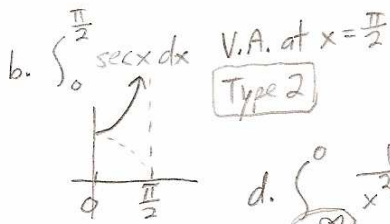 b. ∫₀^(π/2) sec x dx V.A. at x = π/2
Type 2
0 π/2
d. ∫ 0 1
x²